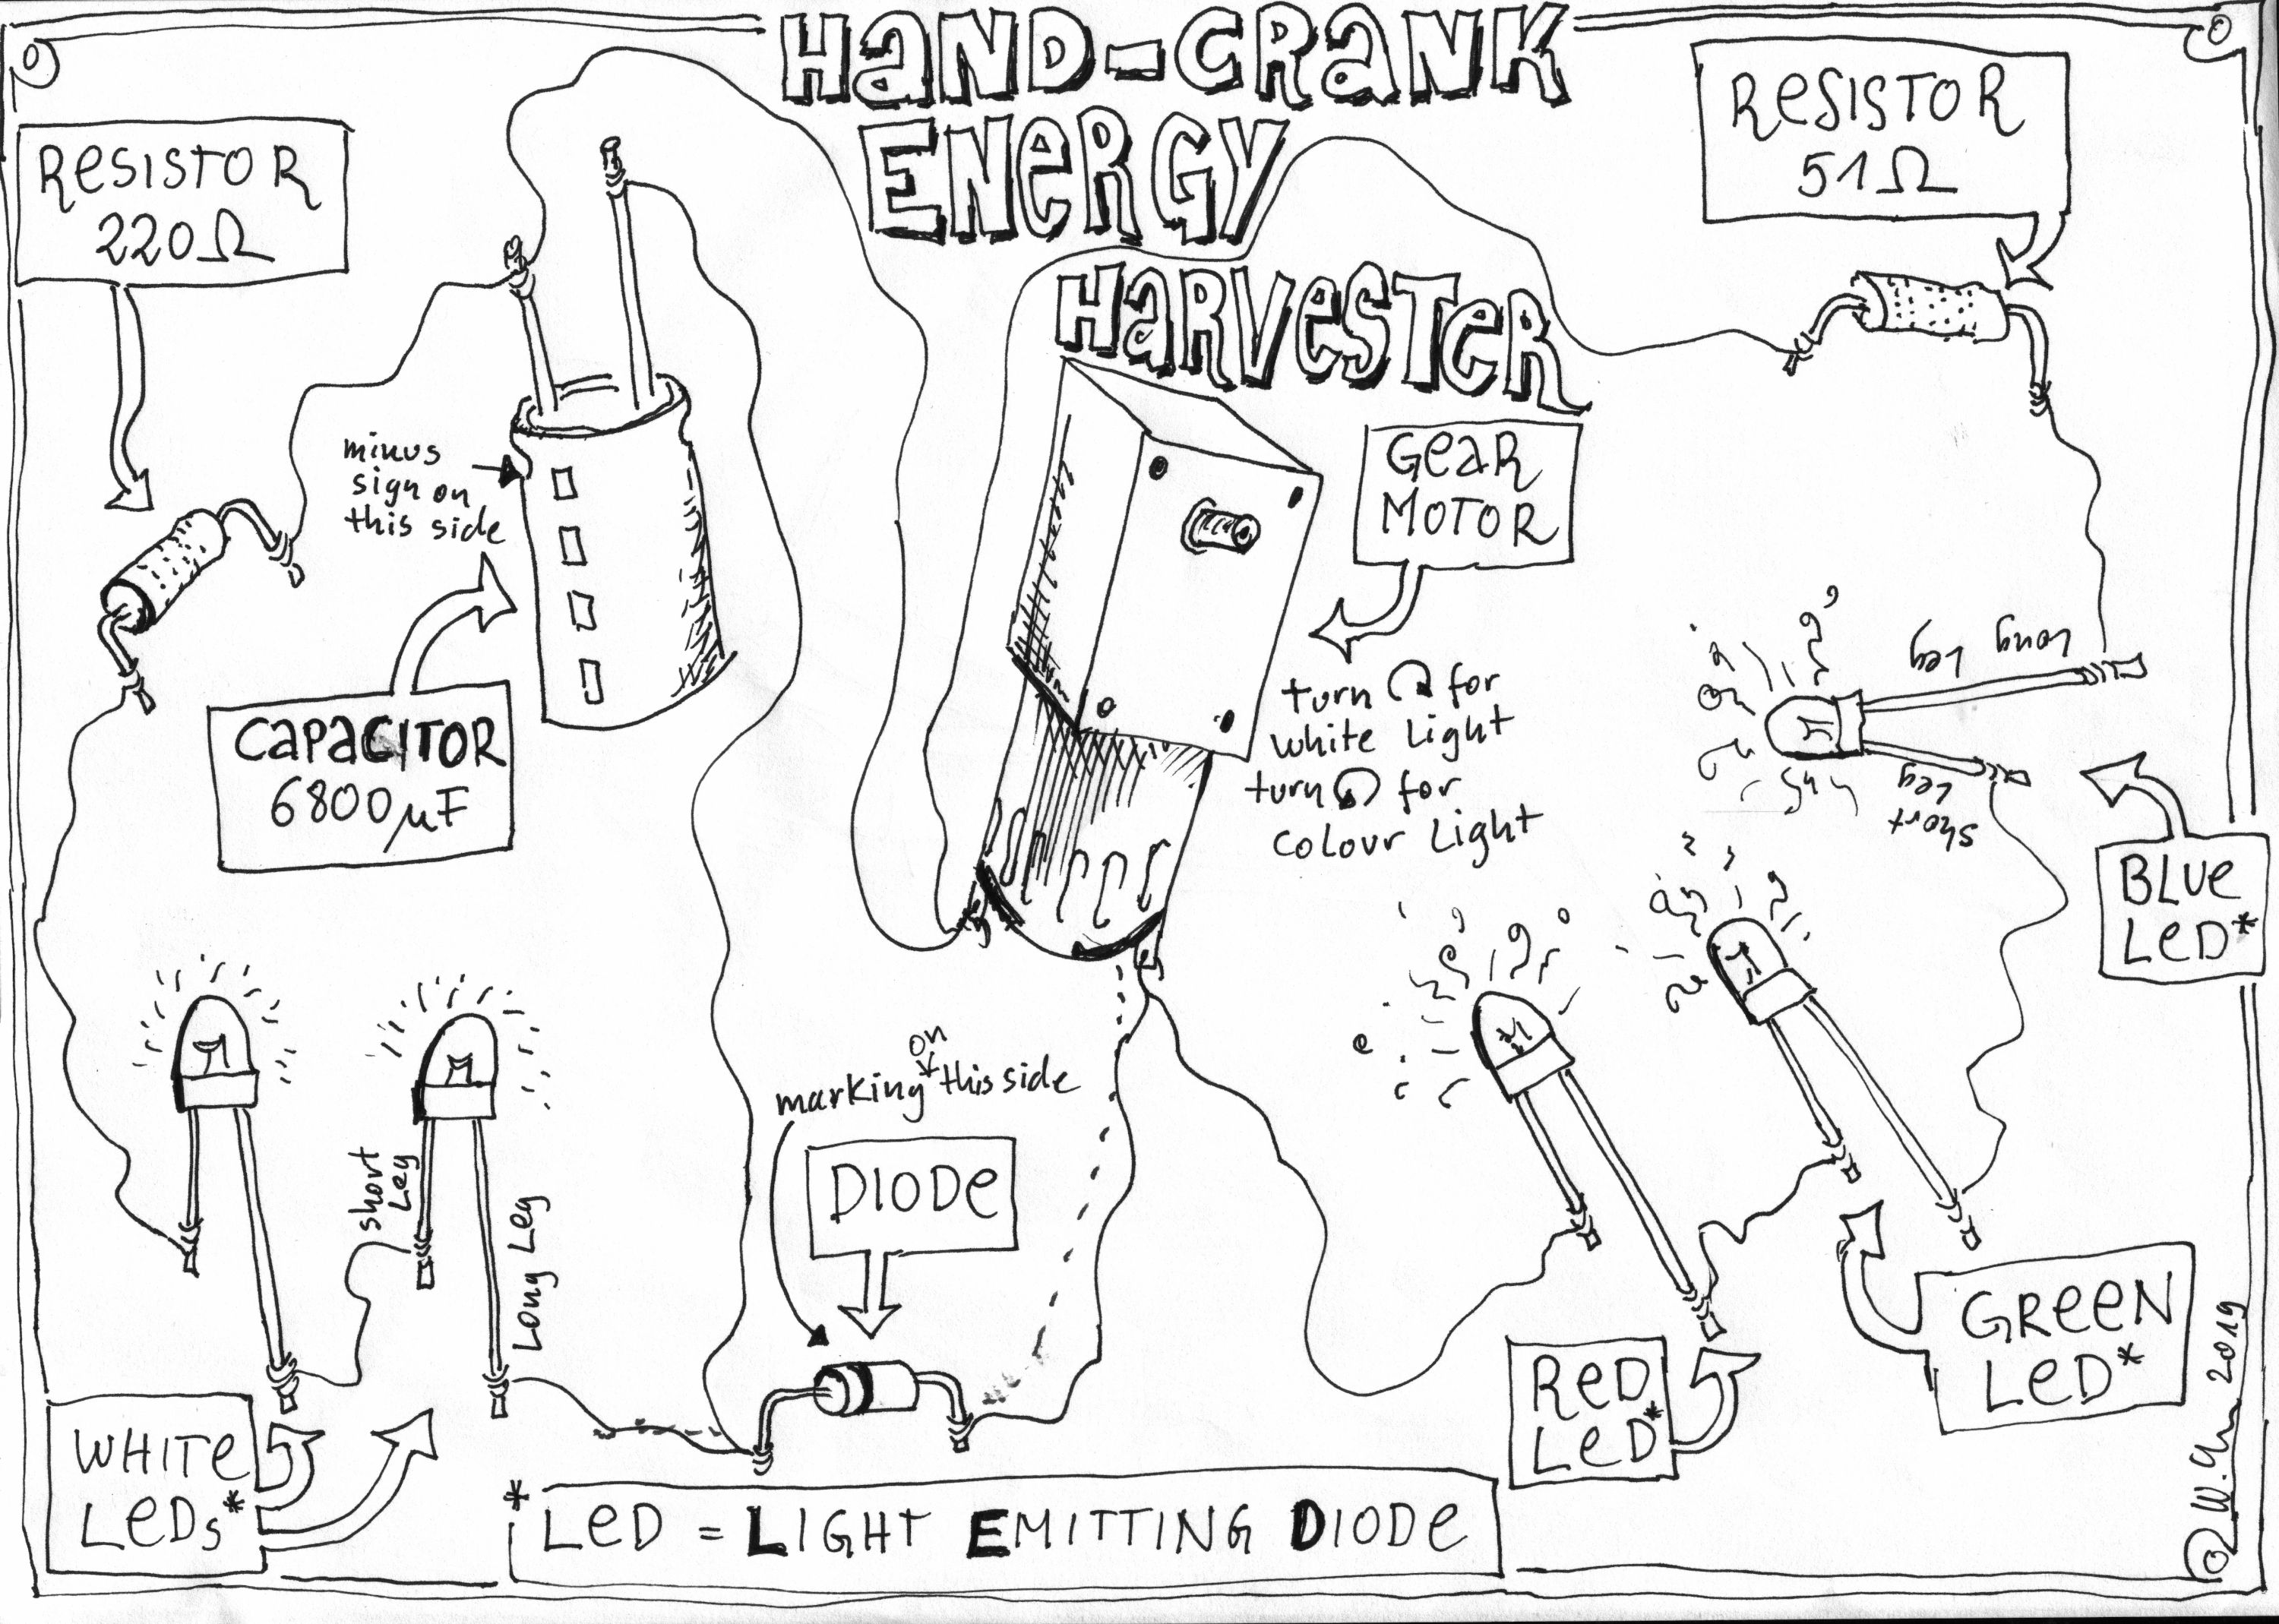 HaND-CRaNK
ENeRGY
HaRVeSTeR
ReSISTOR
220Ω
ReSISTOR
51Ω
minus
sign on
this side
CaPaCITOR
6800µF
GeaR
MOTOR
turn for
white Light
turn for
colour Light
Long Leg
short
Leg
BLUe
LeD*
short
Leg
Long Leg
on
marking this side
DIODe
WHITe
LeDs*
ReD
LeD*
GReeN
LeD*
* LeD = LIGHT EMITTING DIODe
2019